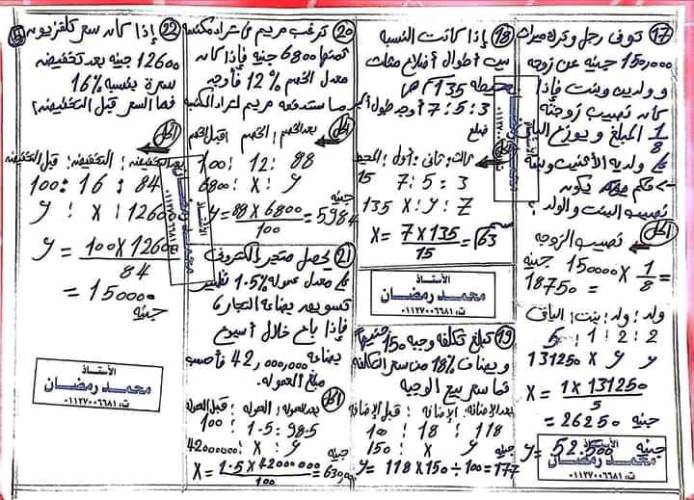 ١٧ توفى رجل وترك ميراث
150,000 جنيه عن زوجه
و ولدين وبنت فإذا
كان نصيب زوجته
1/8 المبلغ ويوزع الباقى
على ولديه الاثنين وبنته
نصيب البنت والولد؟
الحل
نصيب الزوجه
150000 × 1/8 = جنيه
= 18750
ولد : ولد : بنت : الباقى
5 : 1 : 2 : 2
131250 X y y
X = 1 × 131250 / 5
= 26250 جنيه
y = 52.500 جنيه
الأستاذ
محمد رمضان
١٨ إذا كانت النسبه
بين أطوال أضلاع مثلث
محيطه 135
3 : 5 : 7 أوجد طول أكبر
ضلع
الحل
ثالث : ثانى : أول : المحيط
15 7 : 5 : 3
135 X : y : Z
X = 7 × 135 / 15 = 63
الأستاذ
محمد رمضان
ت: ٠١١٢٧٠٠٦٦٨١
١٩ تبلغ تكلفه وجبه 150 جنيهاً
ويضاف 18% من سعر التكلفه
فما سعر بيع الوجبه
بعد الإضافه : الإضافه : قبل الإضافه
100 : 18 : 118
150 : X : y
y = 118 × 150 ÷ 100 = 177 جنيه
٢٠ ترغب مريم فى شراء مكنسه
ثمنها 6800 جنيه فإذا كان
معدل الخصم 12% فأوجد
ما ستدفعه مريم لشراء المكنسه
الحل
بعد الخصم : الخصم : قبل الخصم
100 : 12 : 88
6800 : X : y
y = 88 × 6800 / 100 = 5984 جنيه
٢١ يحصل متجر إلكترونى
على معدل عموله 1.5% نظير
تسويقه بضاعه التجار
فإذا باع خلال أسبوع
بضاعه 42,000,000 فأحسب
مبلغ العموله.
الحل
بعد العموله : العموله : قبل العموله
100 : 1.5 : 98.5
42000000 : X : y
X = 1.5 × 42000000 / 100 = 630000 جنيه
٢٢ إذا كان سعر تلفزيون
12600 جنيه بعد تخفيض
سعره بنسبه 16%
فما السعر قبل التخفيض؟
الحل
بعد التخفيض : التخفيض : قبل التخفيض
100 : 16 : 84
y : X : 12600
y = 100 × 12600 / 84
= 15000 جنيه
الأستاذ
محمد رمضان
ت: ٠١١٢٧٠٠٦٦٨١